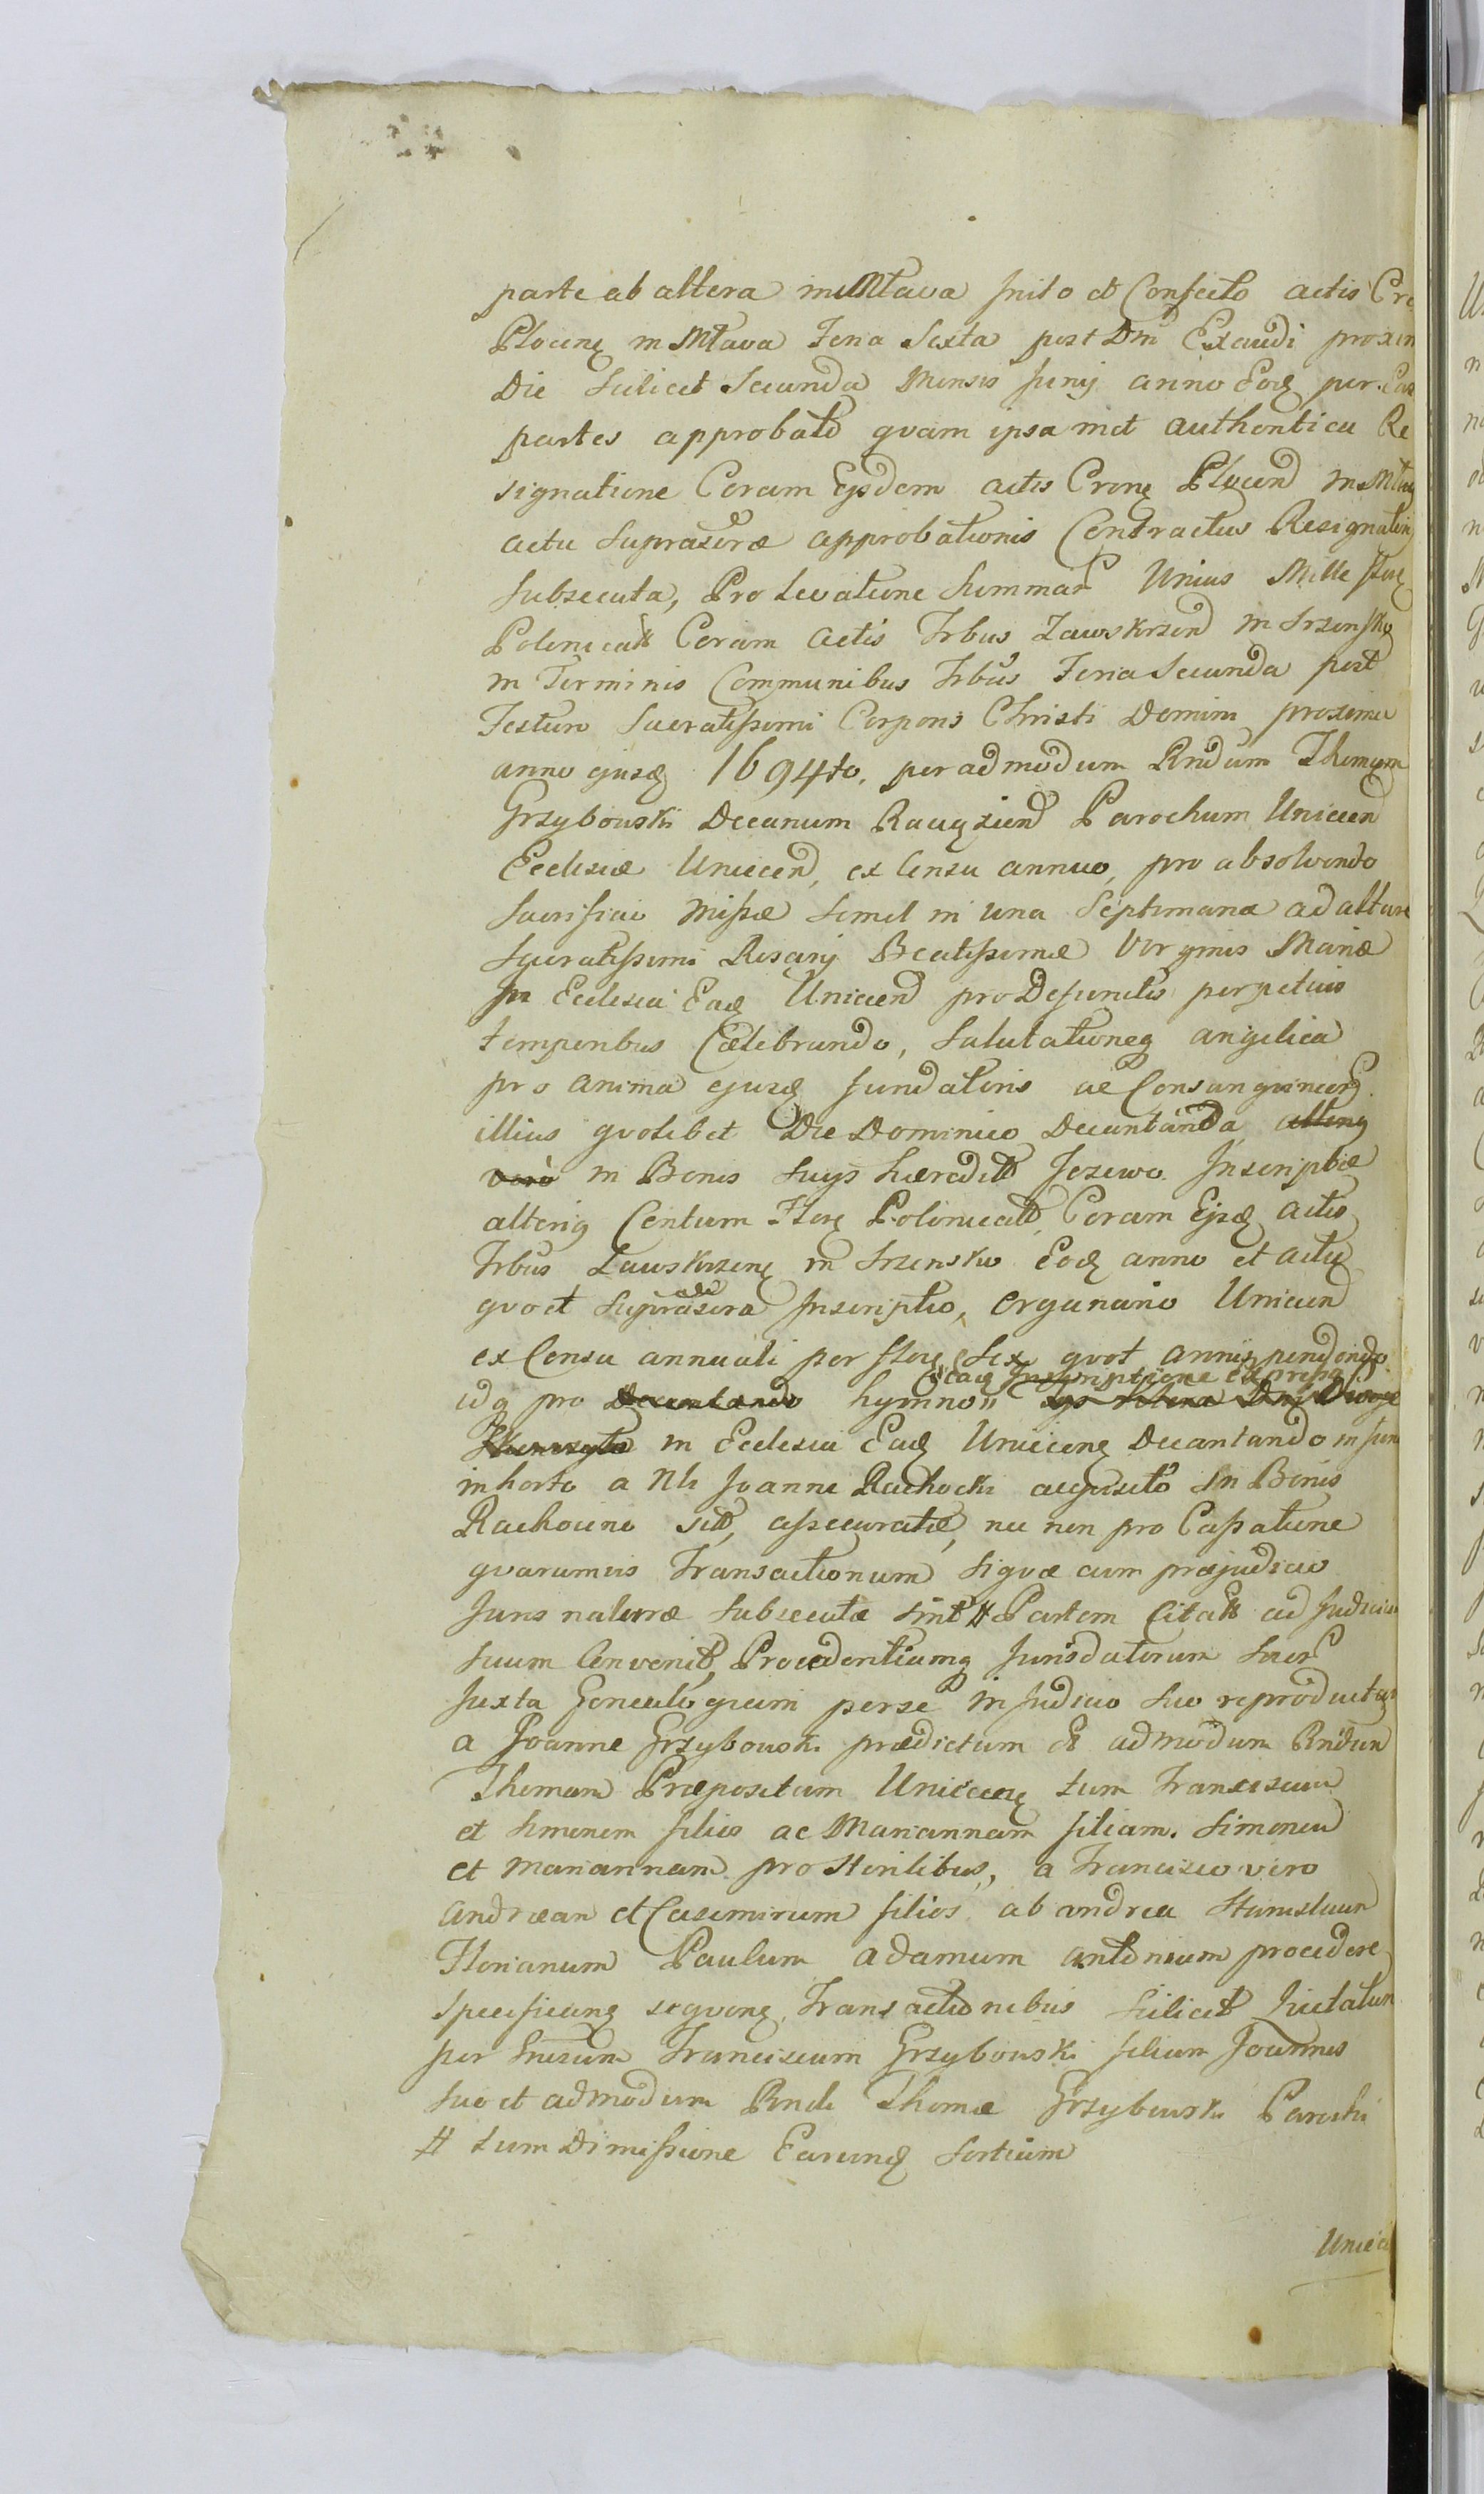 parte ab altera in Mlava Inito et Confecto actis Cre
Plocenȩ in Mlava Feria Sexta post Dm Exaudi proxim
Die Scilicet Secunda Mensis Junij anno Eodȩ per Eas
partes approbato qvam ipsa met authentica Re
signatione Coram Ejsdem actis Crenȩ Plocen in Mlav
actu Suprascræ approbationis Contractus Resignation
Subsecuta, Pro Levatione Summar Unius Mille flor
Polonicall Coram actis Trbus Zawskrzen in Srzensko
in Terminis Communibus Trbus Feria Secunda post
Festum Sacratissimi Corporis Christi Domini proxima
anno ejusdȩ 1694to, per admodum Rndum Thomam
Grzybowski Decanum Raciązien Parochum Uniecen
Eclesiæ Uniecen, ex Censu annuo, pro absolvendo
Sacrificio Missæ Semel in una Septimana ad altare
Sacratissimi Rosarij Beatissimæ Virginis Mariæ
In Eclesia Eadȩ Uniecen pro Defunctis perpetuis
temporibus Cælebrando, Salutationeq angelica
pro anima ejusdȩ fundatoris ac Consangvineor
illius qvolibet Die Dominico Decantanda, alteriq
vero in Bonis Suys hæredit Jezewo Inscriptæ
alteriq Centum Flore Polonicall, Coram Ejsdȩ actis
Trbus Zawskrzenȩ in Srzensko Eodȩ anno et actu
qvo et Suprascra ale Inscriptio, Organario Uniecen
ex Censu annuali per flore Sex qvot annis pendendo
Eadȩ Inscriptione Expresso
idq pro Decantando hymno
in Eclesia Eadȩ Uniecenȩ Decantando in fun
in horto a Nb Joanne Rachocki acqvisito In Bonis
Rachocino sit, assecuratæ, nec non pro Cassatione
qvarumvis Transactionum Siqvæ cum præjudicio
Juris naturæ Subsecutæ sint # Partem Citall ad Judicium
Suum Convenit, Procedentiamq Jurisdatorum Suor
Juxta Genealogiam per se in Judicio Suo reproductam
a Joanne Grzybowski prædictum et admodum Rndum
Thomam Præpositum Uniecenȩ tum Franciscum
et Simonem filios ac Mariannam filiam. Simonem
et Mariannam pro Sterilibus, a Francisco vero
Andream et Casimirum filios ab andrea Stanislaum
Florianum Paulum Adamum Antonium procedere
Specificanȩ seqvenȩ Transactionibus Scilicet
per Franciscum Grzybowski filium Joannis
Suo et admodum Rndi Thomæ Grzybowski Parochi
# tum Dimissione Earundȩ Sortium
Uniec